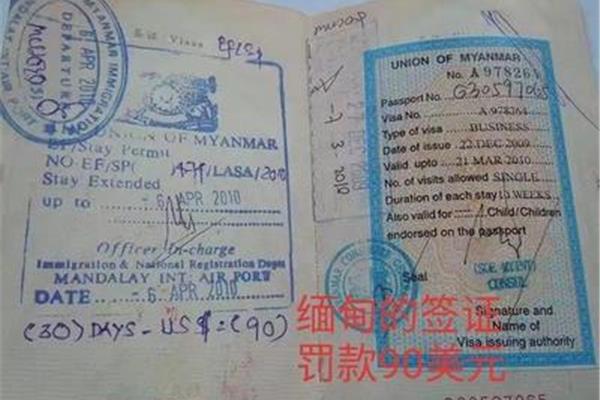 签证 Visas
MYANMAR IMMIGRATION
6 APR 2010
DEPARTURE
MANDALAY INT'L AIR PORT
UNION OF MYANMAR
EF/Stay Permit
NO EF/SP( /LASA/2010
Stay Extended
up to - 6 APR 2010
Officer In-charge
Immigration & National Registration Dept:
MANDALAY INT: AIR PORT
DATE - 6 APR 2010
(30) DAYS - US $ = (90)
UNION OF MYANMAR
No. A 978264
Passport No. G30597065
Visa No. A 978264
Type of visa BUSINESS
Date of issue 22 DEC 2009
Valid upto 21 MAR 2010
No. of visits allowed SINGLE
Duration of each stay 10 WEEKS
Also valid for Child/Children
endorsed on the passport
Seal
CONSUL
Signature and
Name of
Visa issuing authority
缅甸的签证
罚款90美元